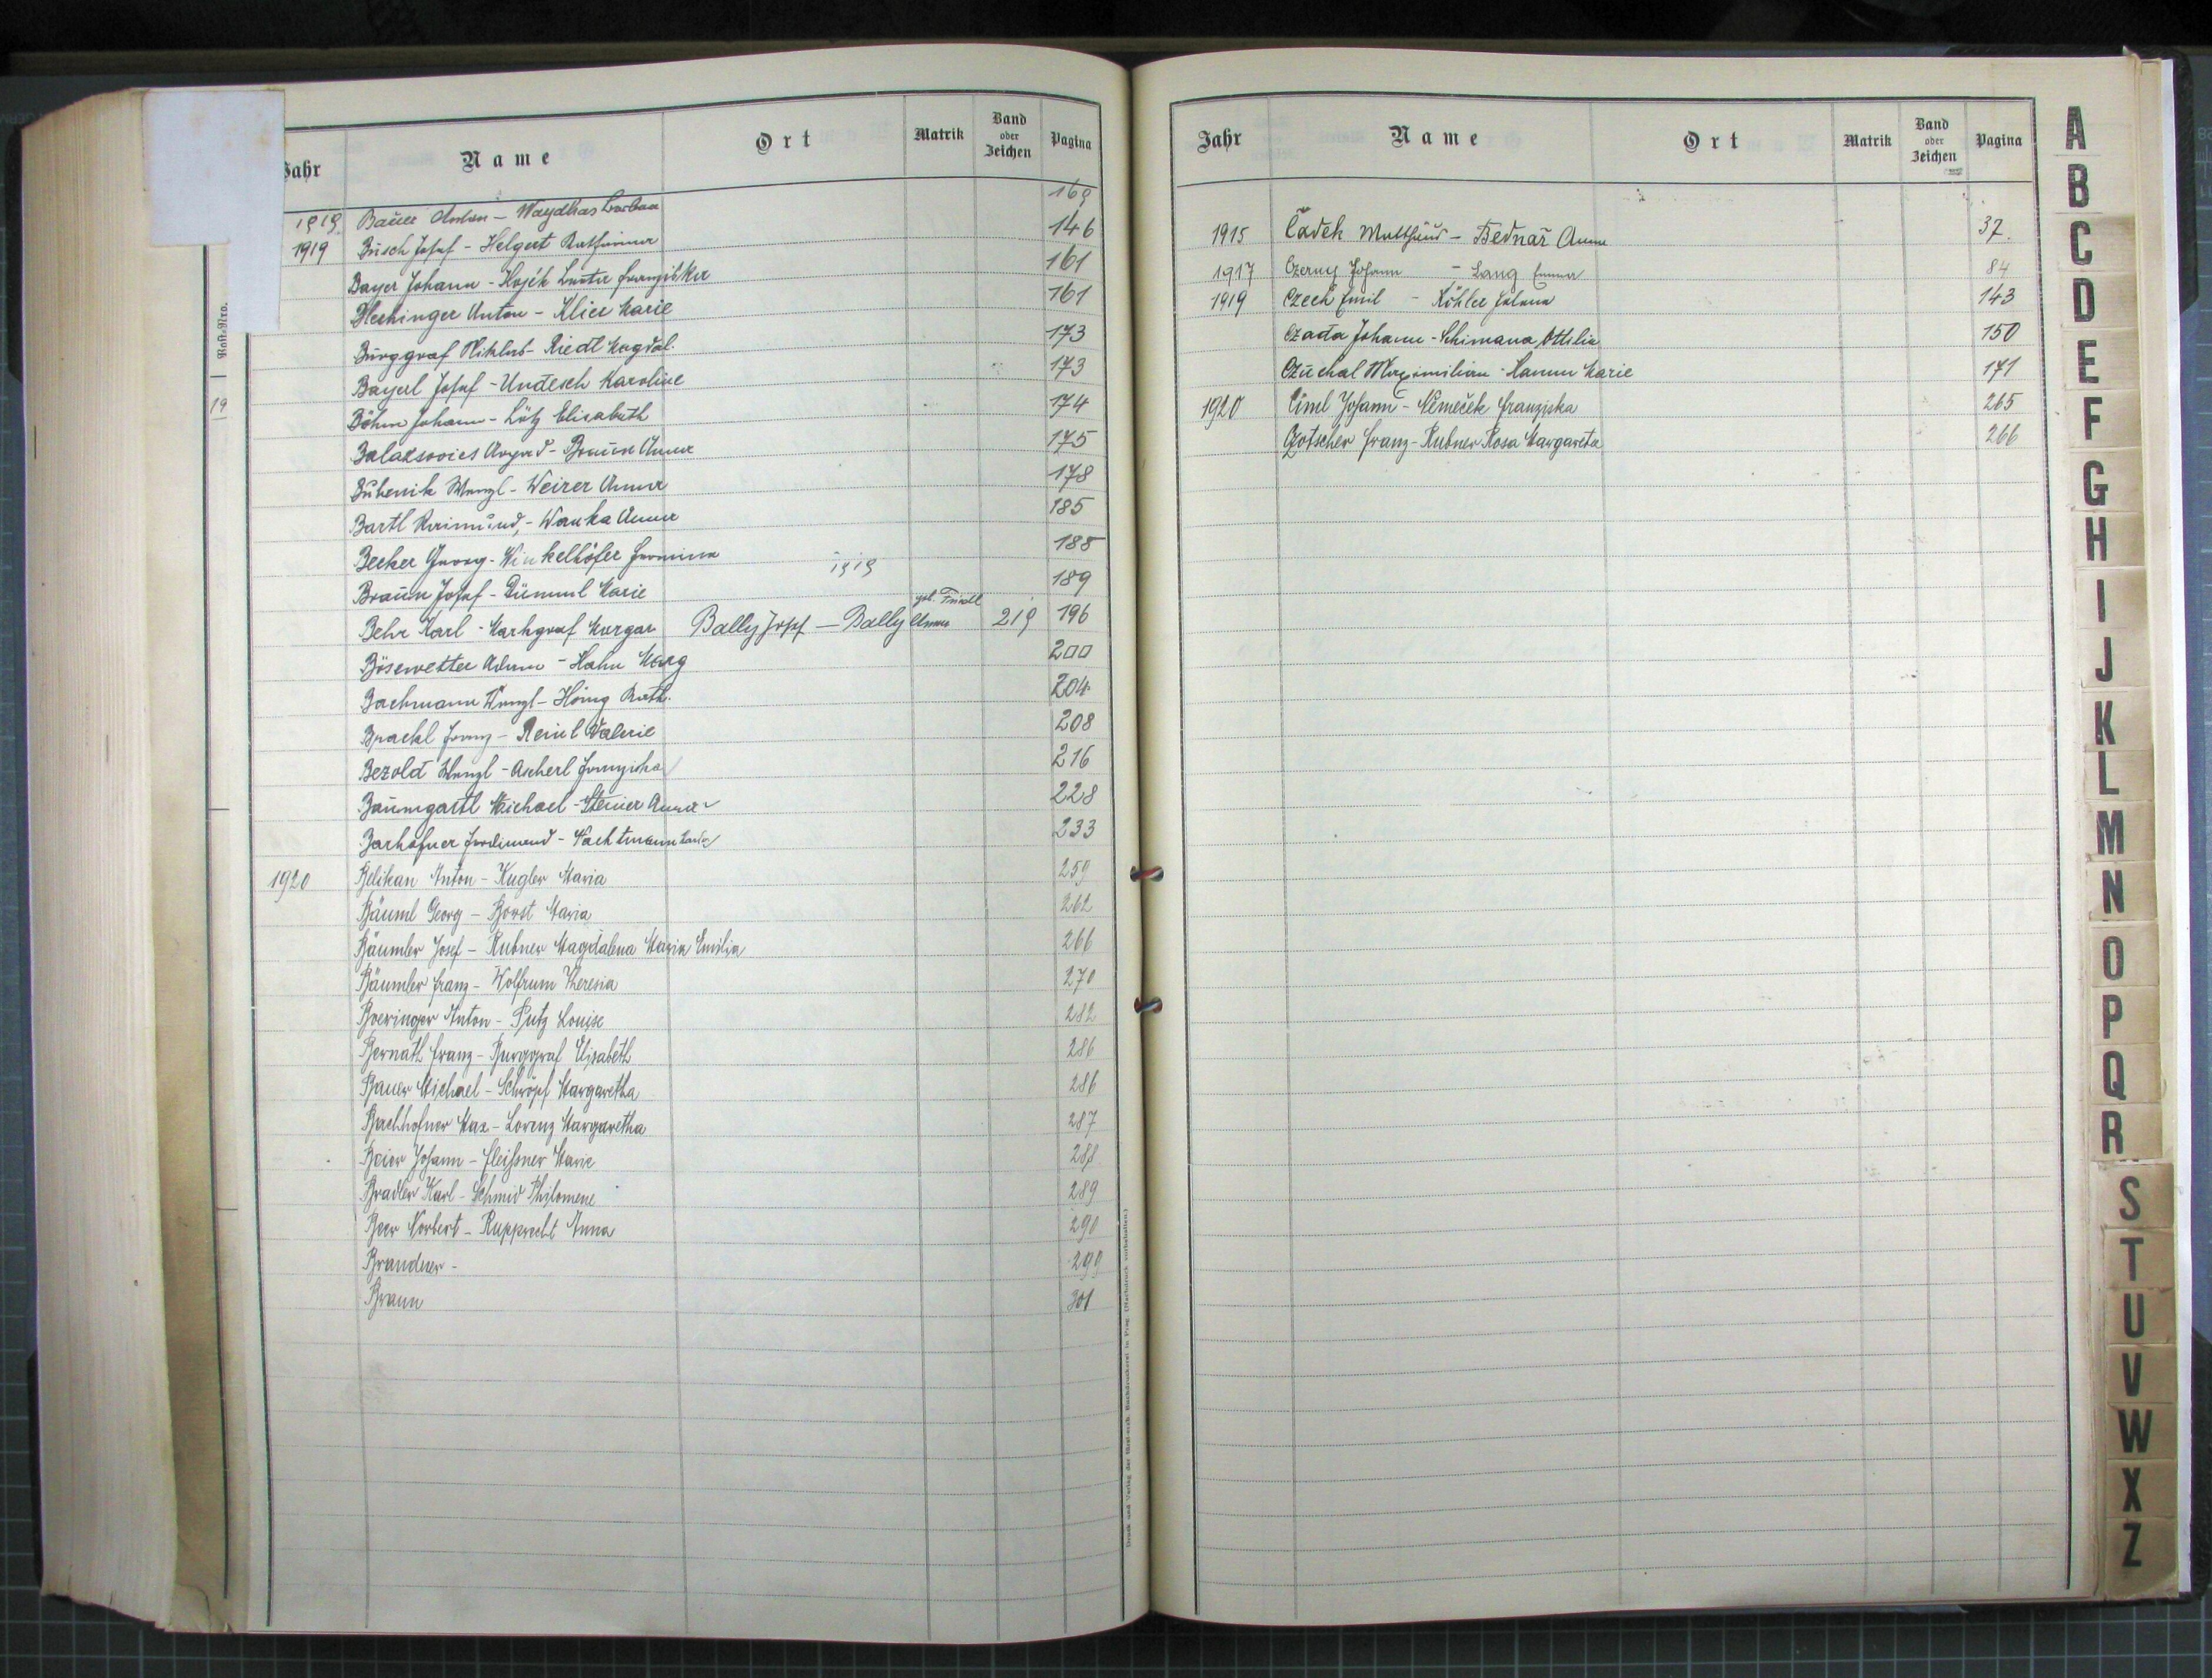 Jahr Name Ort Matrik Band oder Zeichen Pagina
1919 Bauer Anton - Waydhas Barbara 169
1919 Busch Josef - Helgert Katharina 146
Bayer Johann - Franziska 161
Anton - Klier Marie 161
Burggraf Niklas - Riedl Magdal. 173
Bayerl Josef - Undesch Karoline 173
Böhm Johann - Lötz Elisabeth 174
Balaksovics Arpad - Braun Anna 175
Wenzl - Weirer Anna 178
Bartl Raimund, - Wanka Anna 185
Becker Georg - Winkelhöfer Hermina 188
1919
Braun Josef - Dümml Marie 189
geb. Friedl
Behr Karl - Markgraf Margar. Bally Josef - Bally Anna 219 196
Bösewetter Adam - Hahn Marg 200
Bachmann Wenzl - Hönig Kath. 204
Brachl Franz - Reinl Valerie 208
Bezold Wenzl - Ascherl Franziska 216
Baumgartl Michael - Steiner Anna 228
Barhofner Ferdinand - Wachtmann 233
1920 Belikan Anton - Kugler Maria 259
Bäuml Georg - Horst Maria 262
Bäumler Josef - Rubner Magdalena Maria Emilia 266
Bäumler Franz - Wolfrum Theresia 270
Boeringer Anton - Putz Louise 282
Bernath Franz - Burggraf Elisabeth 286
Bauer Michael - Schröpf Margaretha 286
Bachhofner Max - Lorenz Margaretha 287
Beier Johann - Fleißner Marie 288
Bradler Karl - Schmid Philomene 289
Beer Norbert - Rupprecht Anna 290
Brandner - 299
Braun 301
19
Jahr Name Ort Matrik Band oder Zeichen Pagina
1915 Čadek Matthäus - Bednař Anna 37.
1917 Czerny Johann - Lang Emma 84
1919 Czech Emil - Köhler Helene 143
Czada Johann - Schimana Ottilia 150
Czuchal Maximilian - Hamm Marie 171
1920 Ciml Johann - Němeček Franziska 265
Czotscher Franz - Rubner Rosa Margareta 266
A
B
C
D
E
F
G
H
I
J
K
L
M
N
O
P
Q
R
S
T
U
V
W
X
Z